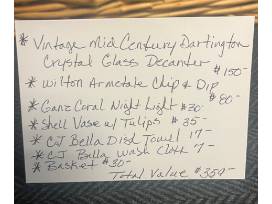 * Vintage Mid Century Dartington
Crystal Glass Decanter
$150-
* Wilton Armetale Chip & Dip
$80-
* Ganz Coral Night Light $30-
* Shell Vase w/ Tulips $35-
* CJ Bella Dish Towel 17-
* CJ Bella Wash Cloth 7-
* Basket $30-
Total Value $359-